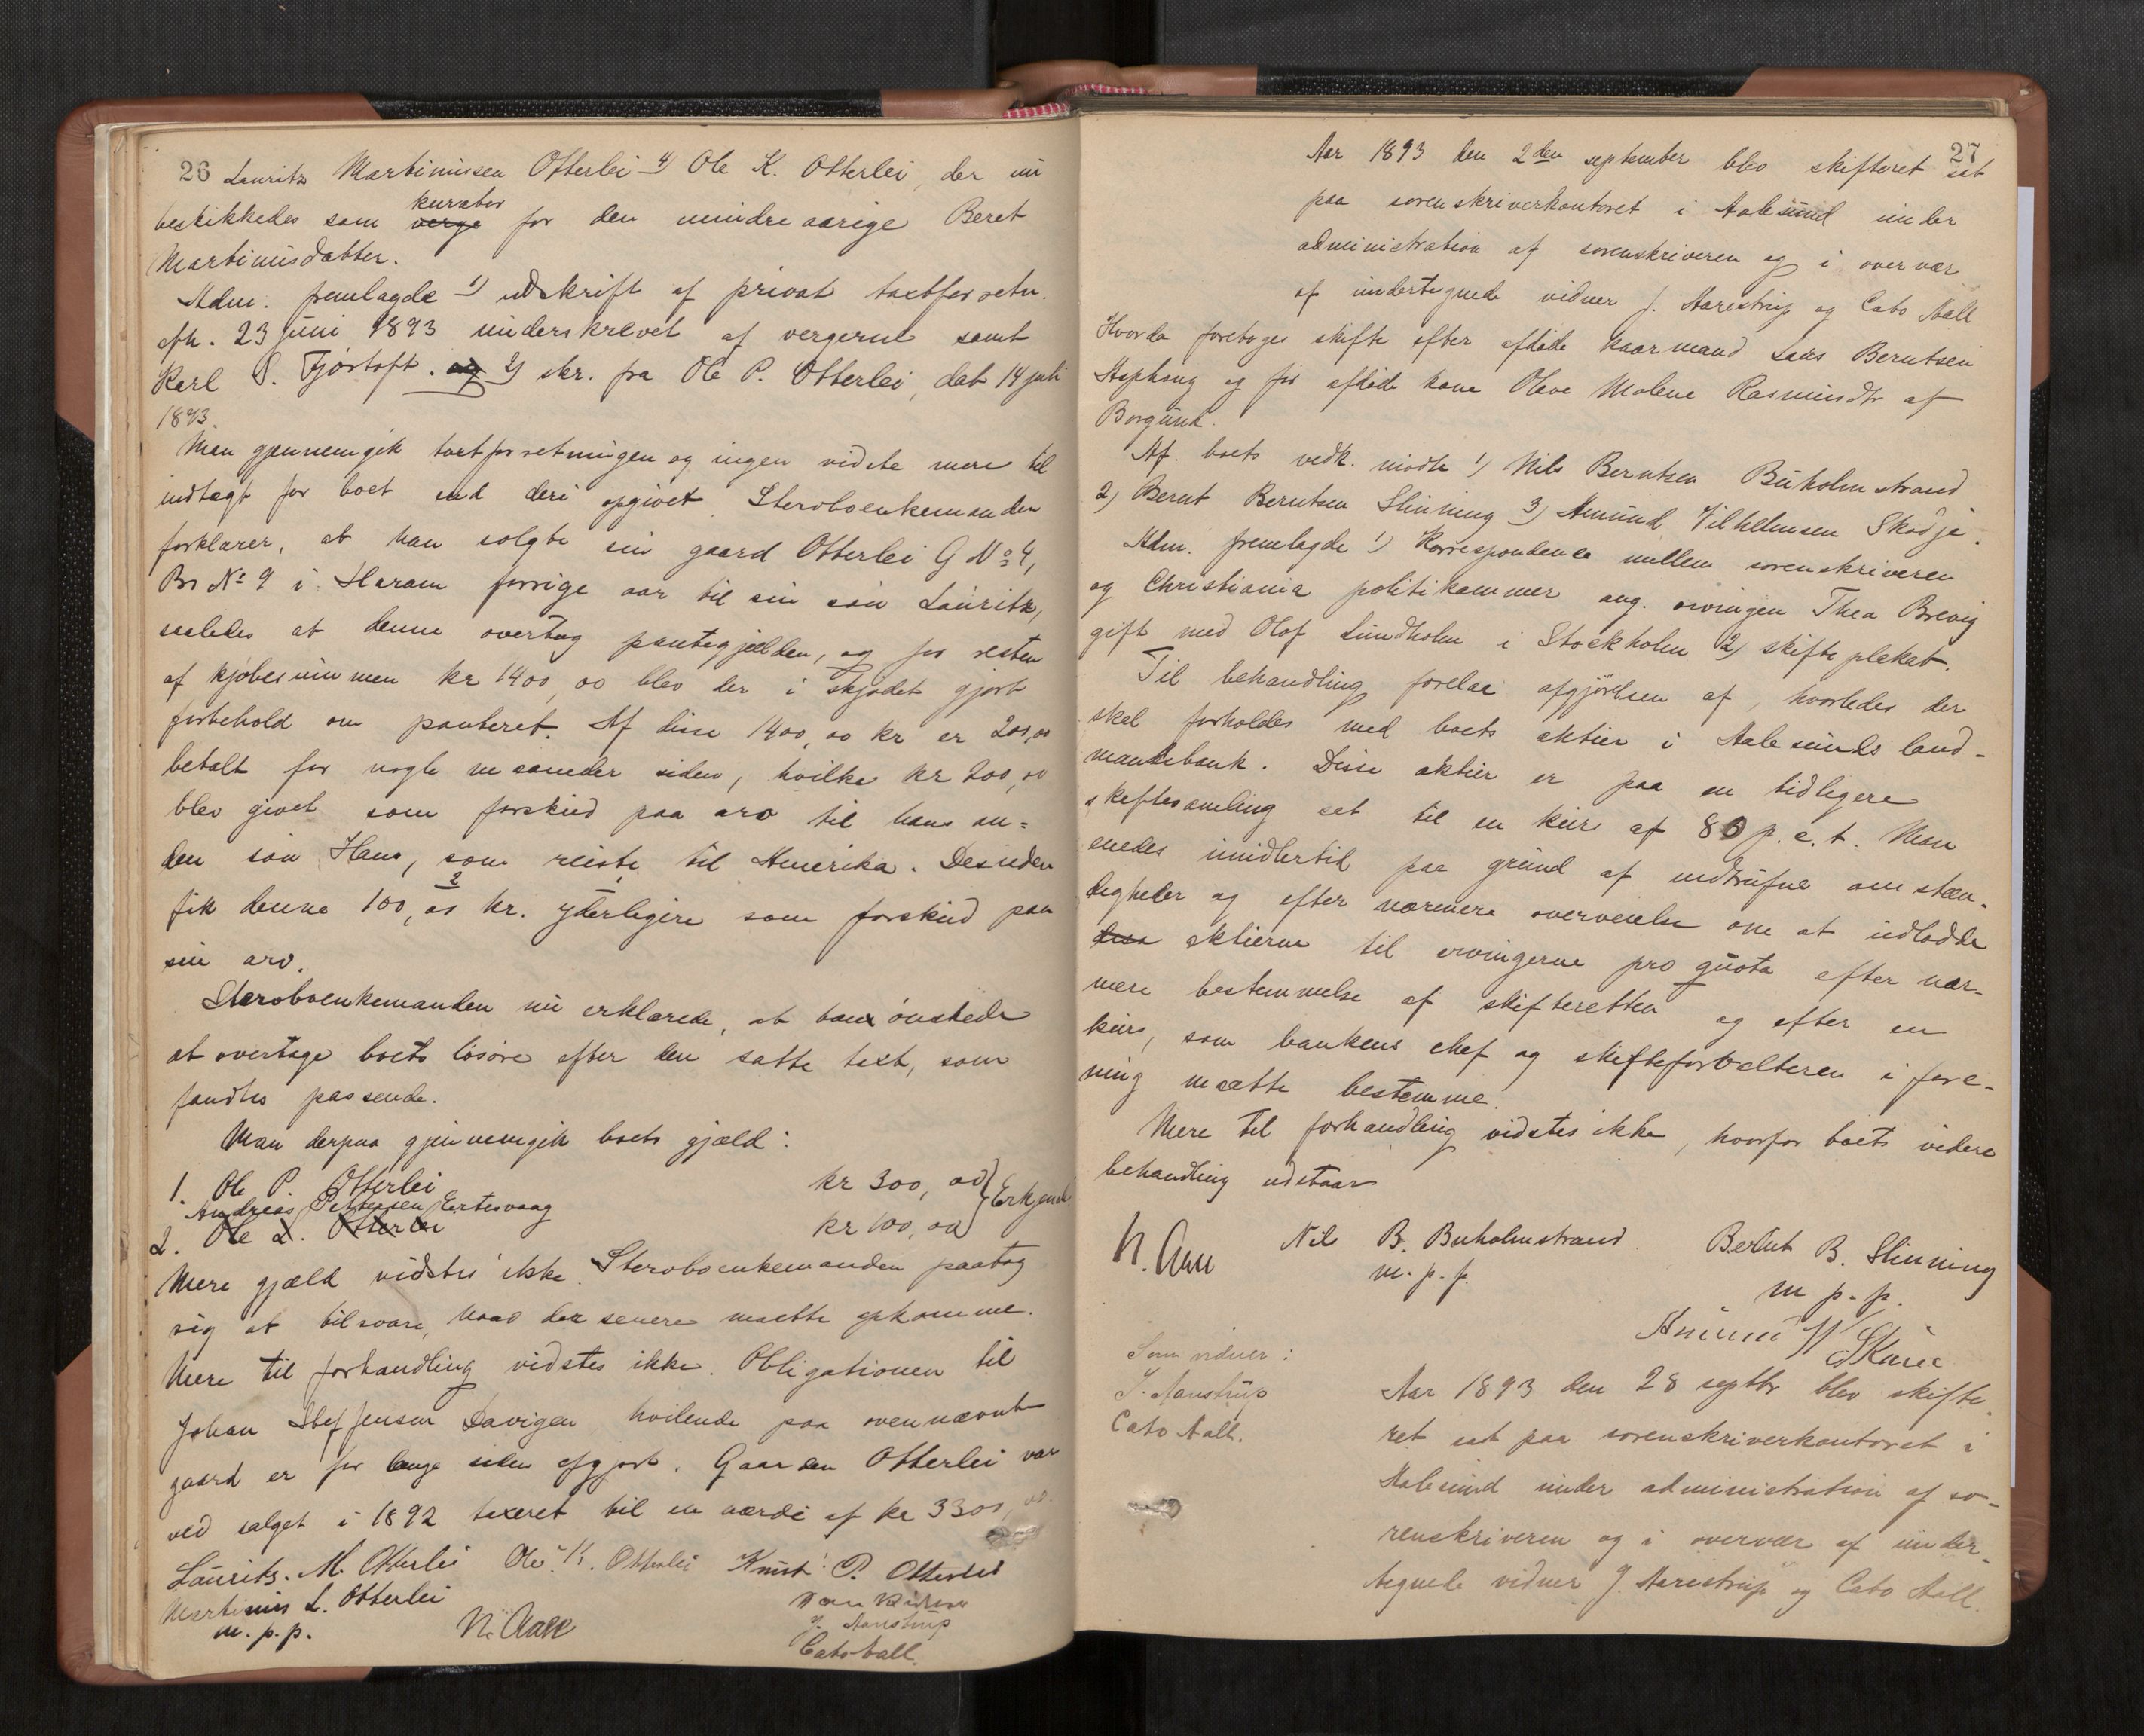 26 Lauritz Martinussen Otterlei 4) Ole K. Otterlei, der nu
kurator
beskikkedes som verge for den mindreaarige Beret
Martinusdatter.
Adm. fremlagde 1) udskrift af privat taxtforretn.
afh. 23 juni 1893 underskrevet af vergerne samt
Karl P. Fjørtoft. og 2) skr. fra Ole P. Otterlei, dat 14 juli
1893.
Man gjennemgik taxtforretningen og ingen vidste mere til
indtægt for boet end deri opgivet. Stervboenkemanden
forklarer, at han solgte sin gaard Otterlei G No 4,
Br No 9 i Haram forrige aar til sin søn Lauritz,
saaledes at denne overtog pantegjælden, og for resten
af kjøbesummen kr 1400,00 blev der i skjødet gjort
forbehold om panteret. Af disse 1400,00 kr er 200,00
betalt for nogle maaneder siden, hvilke kr 200,00
blev givet som forskud paa arv til hans an=
den søn Hans, som reiste til Amerika. Desuden
fik denne 100,00 kr. yderligere som forskud paa
sin arv.
Stervboenkemanden nu erklærede, at han ønskede
at overtage boets løsøre efter den satte taxt, som
fandtes passende.
Man derpaa gjennemgik boets gjæld:
1. Ole P. Otterlei kr 300,00 } Erkjendt
Andreas Pettersen Eertesvaag
2. Ole L. Otterlei kr 100,00
Mere gjæld vidstes ikke. Stervboenkemanden paatog
sig at tilsvare, hvad der senere maatte opkomme.
Mere til forhandling vidstes ikke. Obligationen til
Johan Steffensen Davigen hvilende paa ovennævnte
gaard er for længe siden afgjort. Gaarden Otterlei var
ved salget i 1892 taxeret til en værdi af kr 3300,00.
Laurits. M. Otterlei Ole K. Otterlei Knut P. Otterlei
Martinus L. Otterlei
m. p. p. N. Aall
Som vidner
J. Aarestrup
Cato Aall.
27
Aar 1893 den 2den september blev skifteret sat
paa sorenskriverkontoret i Aalesund under
administration af sorenskriveren og i overvær
af undertegnede vidner J. Aarestrup og Cato Aall
Hvorda foretoges skifte efter afdøde kaarmand Lars Berntsen
Asphaug og før afdøde kone Olave Malene Rasmusdtr af
Borgund.
Af boets vedk. mødte 1) Nils Berntsen Buholmstrand
2) Bernt Berntsen Slinning 3) Amund Vilhelmsen Skodje.
Adm. fremlagde 1) Korrespondance mellem sorenskriveren
og Christiania politikammer ang. arvingen Thea Brevig
gift med Olof Lundholm i Stockholm 2) skifteplakat.
Til behandling forelaa afgjørelsen af, hvorledes der
skal forholdes med boets aktier i Aalesunds land-
mandsbank. Disse aktier er paa en tidligere
skiftesamling sat til en kurs af 80 p.c.t. Man
enedes imidlertid paa grund af indtrufne omstæn-
digheder og efter nærmere overveielse om at udlodde
disse aktierne til arvingerne pro quota efter nær-
mere bestemmelse af skifteretten og efter en
kurs, som bankens chef og skifteforvalteren i fore-
ning maatte bestemme.
Mere til forhandling vidstes ikke, hvorfor boets videre
behandling udstaar
N. Aall Nils B. Buholmstrand. Bernt B. Slinning
m. p. p. m p. p.
Amund V Skare
Som vidner:
J. Aarestrup
Cato Aall.
Aar 1893 den 28 septbr blev skifte-
ret sat paa sorenskriverkontoret i
Aalesund under administration af so-
renskriveren og i overvær af under-
tegnede vidner J. Aarestrup og Cato Aall.